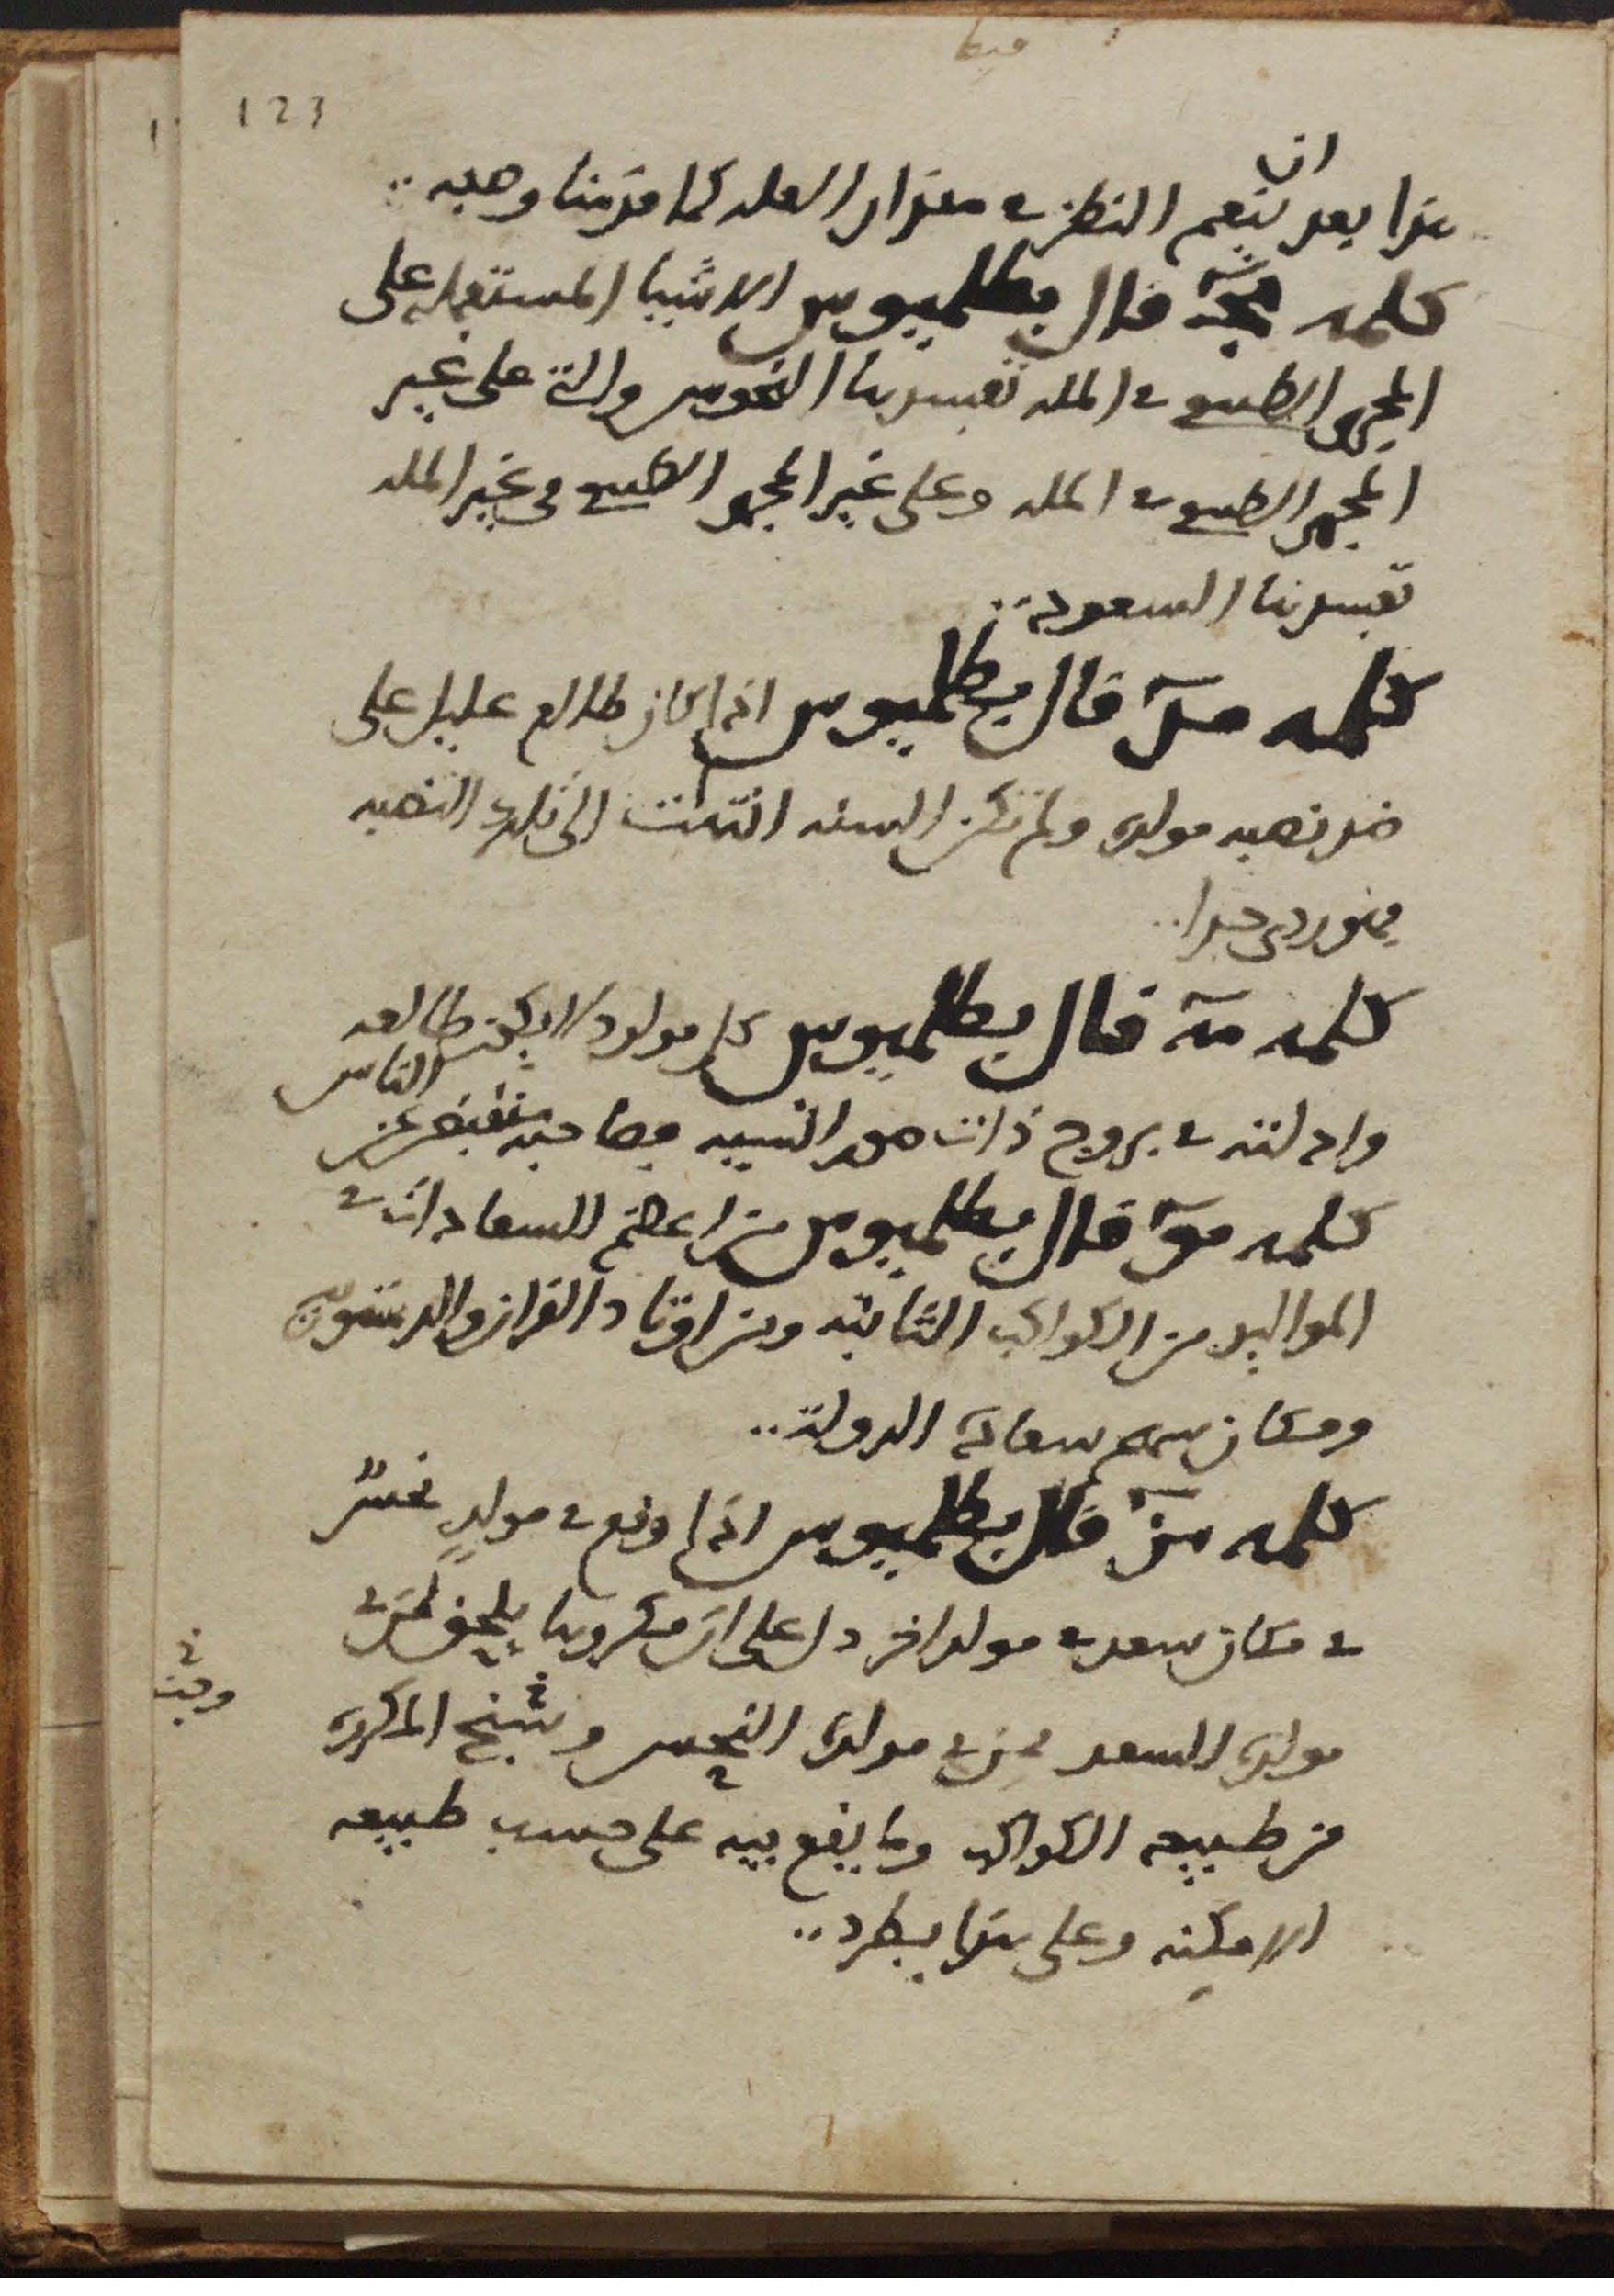 123
هذا بعد ان ينعم النظر في مقدار العلة كما قدمنا وصفه
كلمه مج قال بطلميوس الاشيا المستعمله على
المجرى الطبيعي في الملة تفسدها النحوس والتي على غير
المجرى الطبيعي في الملة وعلى غير المجرى الطبيعي في غير الملة
تفسدها السعود
كلمه مد قال بطلميوس اذا كان طالع عليل على
ضد نصبه مولده ولم تكن السنه انتهت الى تلك النصبه
فهو ردي جدا
كلمه مه قال بطلميوس كل مولود لا يكون طالعه
وادلته في بروج ذات صور انسيه فصاحبه منقبض عن الناس
كلمه مو قال بطلميوس من اعظم السعادات في
المواليد من الكواكب الثابته ومن اوتاد القران والدستورية
ومكان سهم سعادة الدولة
كلمه مز قال بطلميوس اذا وقع في مولد نحس
في مكان سعد في مولد اخر دل على ان مكروها يلحق لمن في
مولده السعد ممن في مولده النحس المكروه
من طبيعه الكواكب وما يقع فيه على حسب طبيعه
الامكنه وعلى هذا يطرد